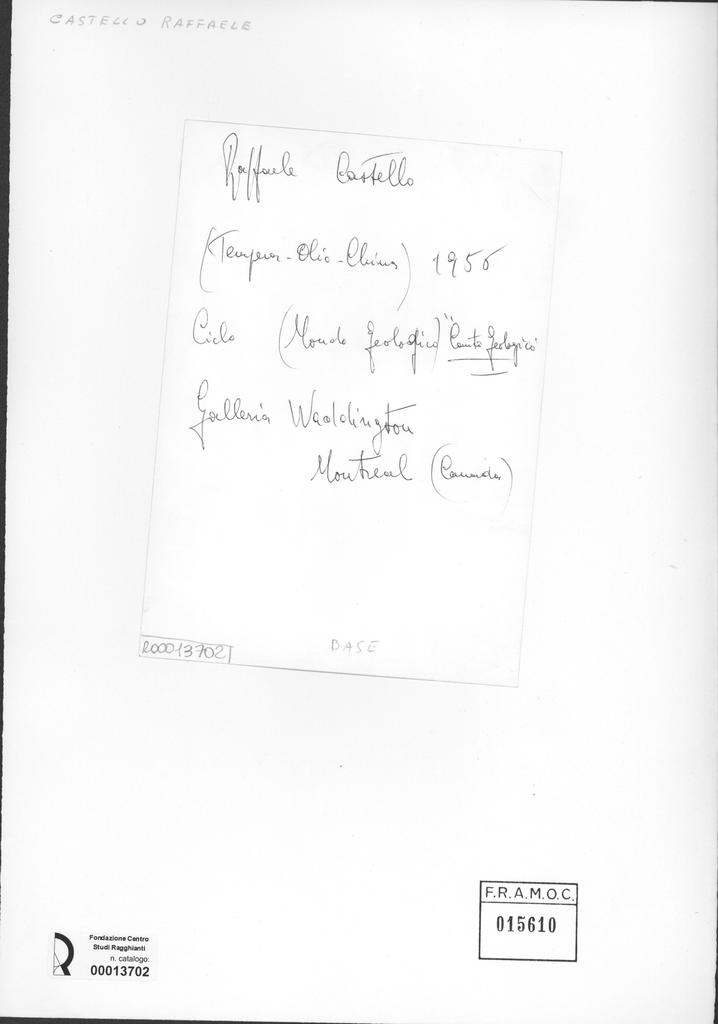 CASTELLO RAFFAELE
Raffaele Castello
(Tempera - Olio - China) 1956
Ciclo (Mondo Geologico) "Canto Geologico"
Galleria Waddington
Montreal (Canada)
R00013702
BASE
F.R.A.M.O.C.
015610
Fondazione Centro
Studi Ragghianti
n. catalogo:
00013702